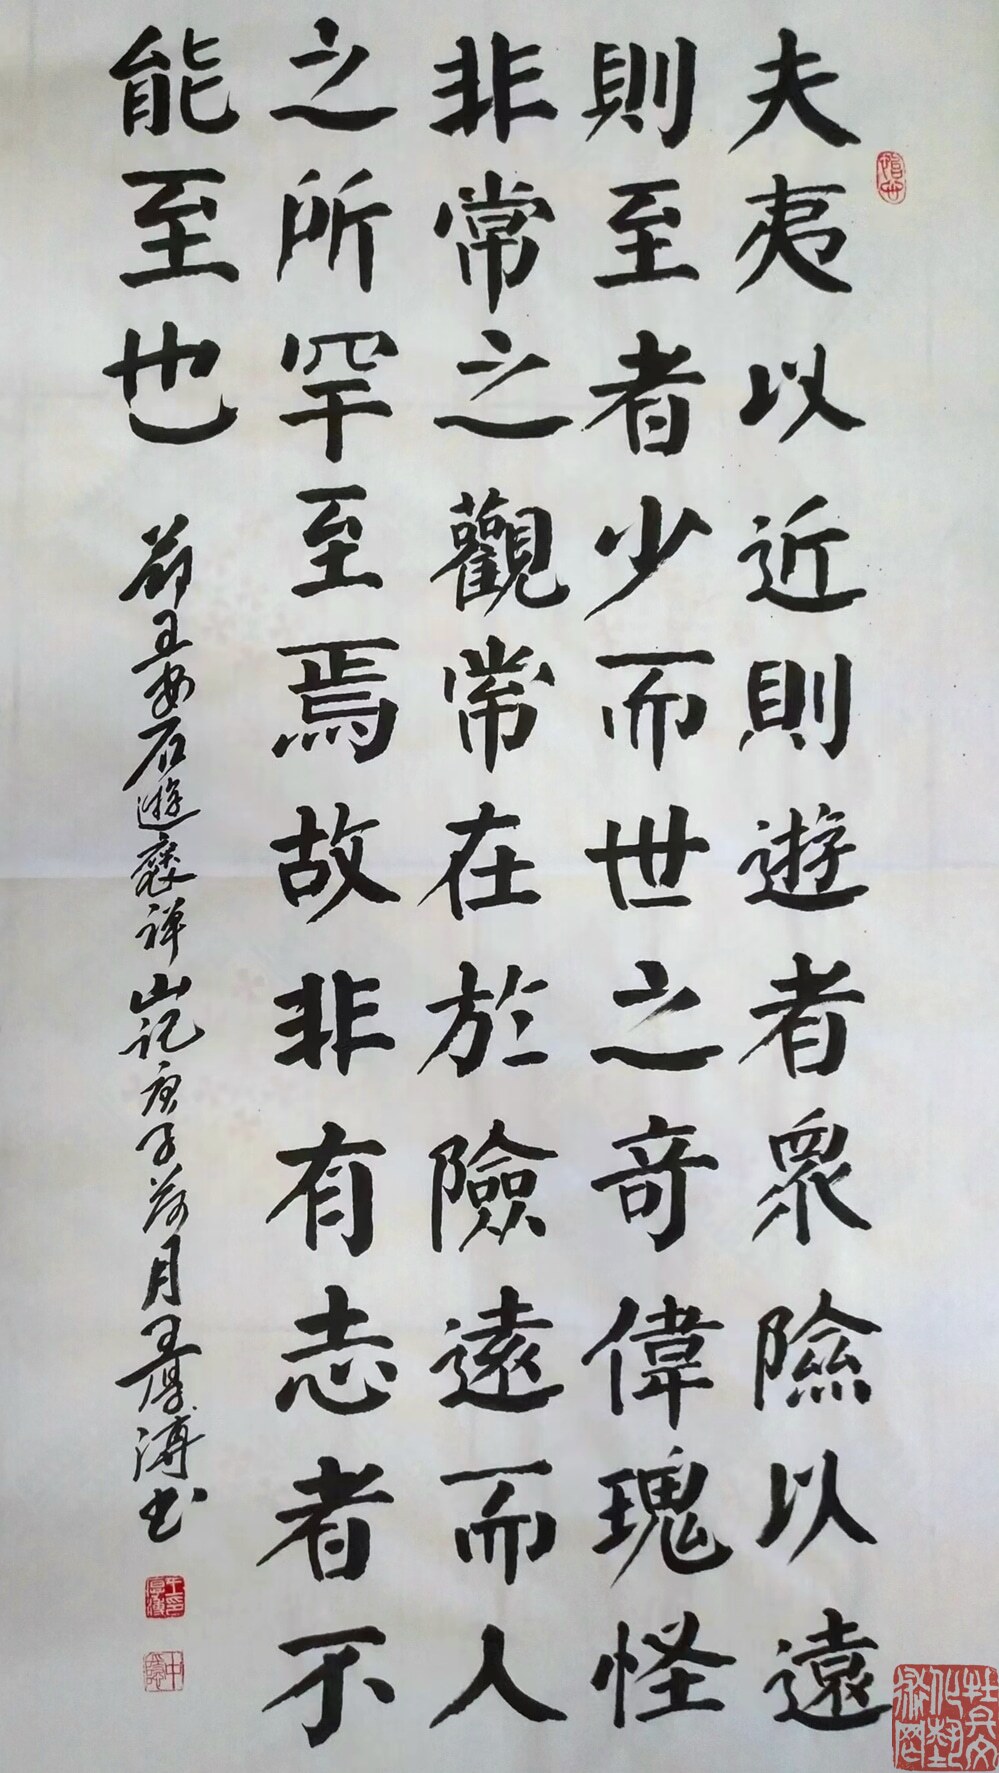 夫夷以近則遊者衆險以遠
則至者少而世之奇偉瑰怪
非常之觀常在於險遠而人
之所罕至焉故非有志者不
能至也
節王安石遊褒禅山記庚子荷月王厚溥书